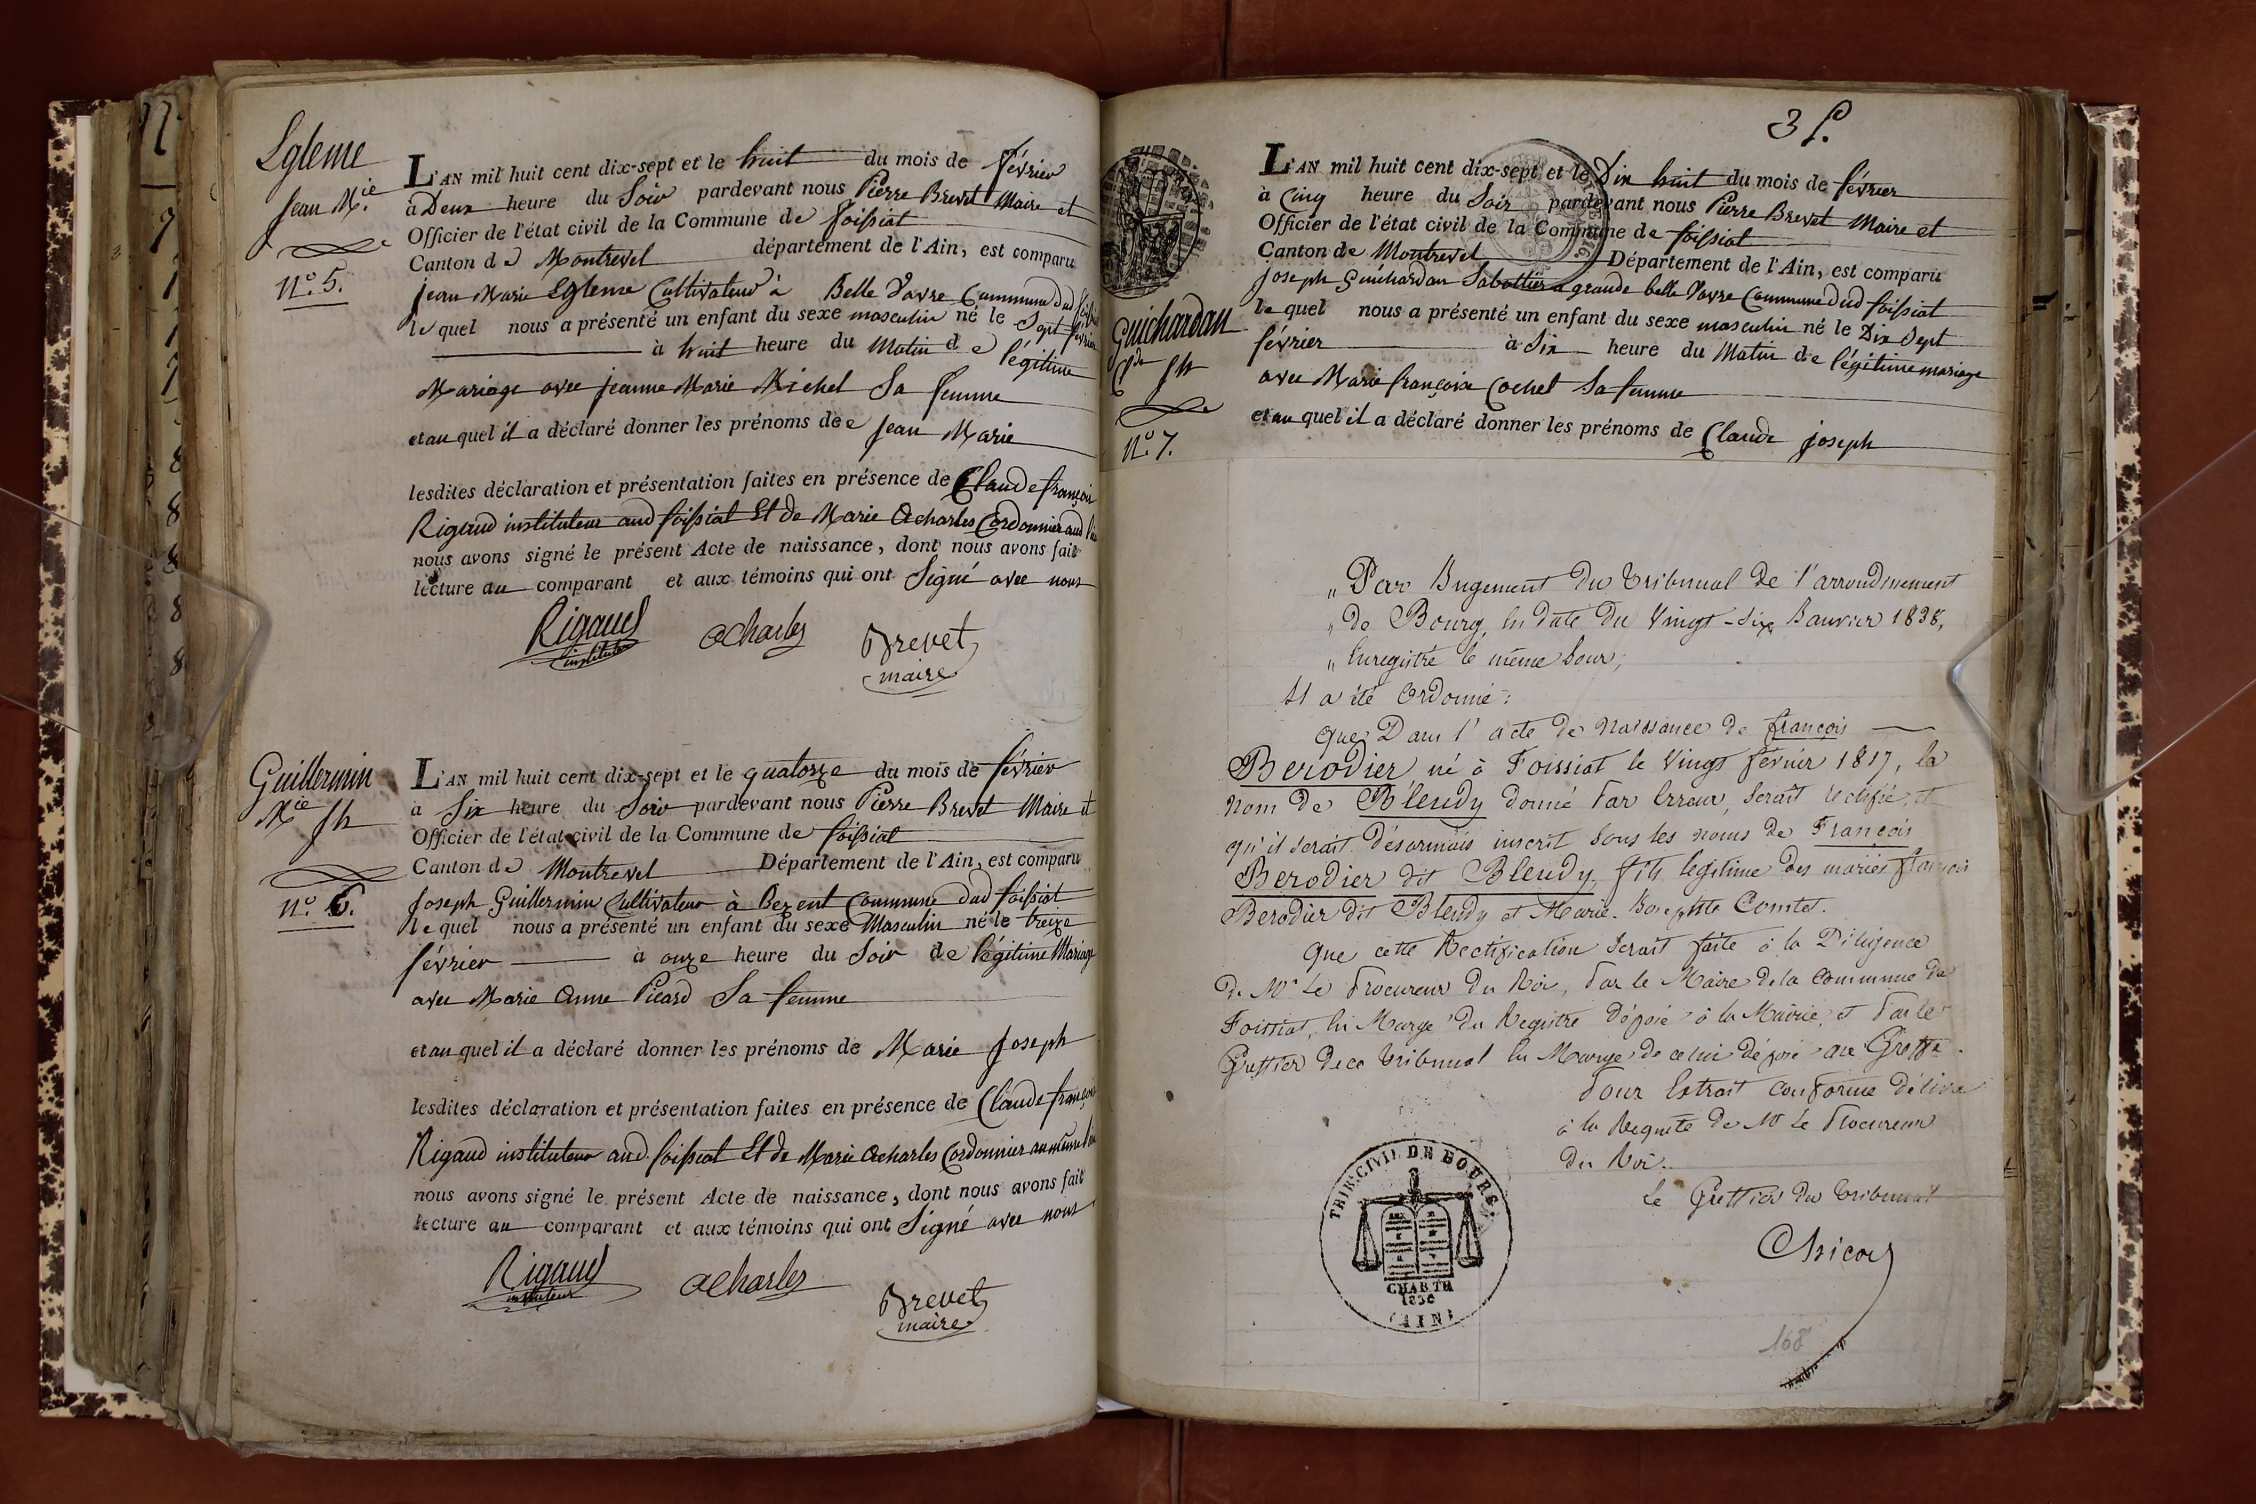 Egleme
Jean Mie
No. 5.
L'AN mil huit cent dix-sept et le huit du mois de février
à Deux heure du Soir pardevant nous Pierre Brevet Maire et
Officier de l'état civil de la Commune de foissiat
Canton de Montrevel département de l'Ain, est comparu
jean Marie Egleme Cultivateur à Belle Vavre Commune dud foissiat
le quel nous a présenté un enfant du sexe masculin né le Sept février
à huit heure du Matin de légitime
Mariage avec jeanne Marie Michel Sa femme
et au quel il a déclaré donner les prénoms de jean Marie
lesdites déclaration et présentation faites en présence de Claude françois
Rigaud instituteur aud foissiat Et de Marie Acharles Cordonnier aud lieu
nous avons signé le présent Acte de naissance, dont nous avons fait
lecture au comparant et aux témoins qui ont Signé avec nous
Rigaud acharles Brevet
instituteur maire
Guillermin
Mie jh
No. 6.
L'AN mil huit cent dix-sept et le quatorze du mois de février
à Six heure du Soir pardevant nous Pierre Brevet Maire et
Officier de l'état civil de la Commune de foissiat
Canton de Montrevel Département de l'Ain, est comparu
Joseph Guillermin Cultivateur à Bezent Commune dud foissiat
le quel nous a présenté un enfant du sexe Masculin né le treize
février à onze heure du Soir de légitime Mariage
avec Marie Anne Picard Sa femme
et au quel il a déclaré donner les prénoms de Marie Joseph
lesdites déclaration et présentation faites en présence de Claude françois
Rigaud instituteur aud. foissiat Et de Marie Acharles Cordonnier au même lieu
nous avons signé le présent Acte de naissance, dont nous avons fait
lecture au comparant et aux témoins qui ont Signé avec nous
Rigaud acharles Brevet
instituteur maire
3 f.
Guichardan
Cde jh
No. 7.
L'AN mil huit cent dix-sept et le Dix huit du mois de février
à Cinq heure du Soir pardevant nous Pierre Brevet Maire et
Officier de l'état civil de la Commune de foissiat
Canton de Montrevel Département de l'Ain, est comparu
joseph Guichardan Sabottier a grande belle Vavre Commune dud foissiat
le quel nous a présenté un enfant du sexe masculin né le Dix Sept
février à Six heure du Matin de légitime mariage
avec Marie françoise Cochet Sa femme
et au quel il a déclaré donner les prénoms de Claude joseph
„ Par Jugement du Tribunal de l'arrondissement
„ de Bourg, en date du Vingt-Six Janvier 1838,
„ Enregistré le même Jour;
Il a été Ordonné:
Que Dans l'acte de Naissance de françois
Berodier, né à Foissiat le Vingt février 1817, le
nom de Blendy donné par Erreur, serait rectifié, et
qu'il serait désormais inscrit sous les noms de François
Berodier dit Blendy, fils légitime des mariés françois
Berodier dit Blendy et Marie-Josephte Comtet.
Que cette Rectification serait faite à la Diligence
de Mr Le Procureur du Roi, par le Maire de la Commune de
Foissiat, en Marge du Registre déposé à la Mairie, et par le
Greffier de ce Tribunal en Marge de celui déposé au Greffe.
Pour Extrait conforme délivré
à la Requête de Mr Le Procureur
du Roi.
Le Greffier du Tribunal
TRIB. CIVIL DE BOURG.
CHARTE
1830
(AIN)
168